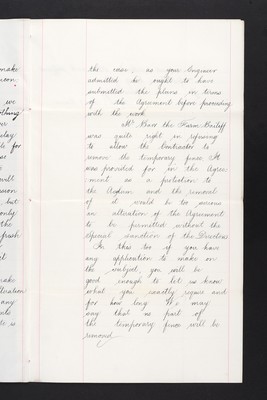 the case, as your Engineer
admitted he ought to have
submitted the plans in terms
of the Agreement before proceeding
with the work
Mr Barr the Farm Bailiff
was quite right in refusing
to allow the Contractor to
remove the temporary fence It
was provided for in the Agree
ment as a protection to
the Asylum and the removal
of it would be too serious
an alteration of the Agreement
to be permitted without the
special sanction of the Directors
In this too if you have
any application to make on
the subject, you will be
good enough to let us know
what you exactly require and
for how long We may
say that no part of
the temporary fence will be
removed